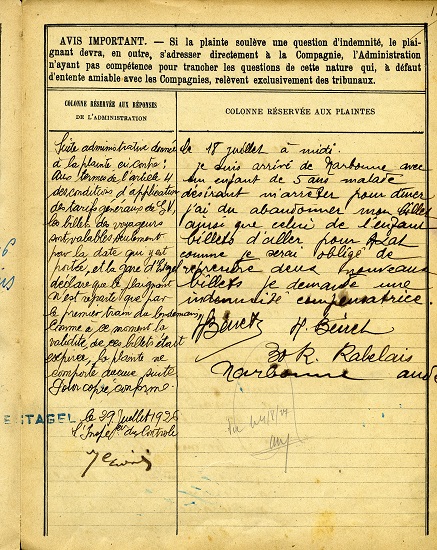 AVIS IMPORTANT. — Si la plainte soulève une question d'indemnité, le plai-
gnant devra, en outre, s'adresser directement à la Compagnie, l'Administration
n'ayant pas compétence pour trancher les questions de cette nature qui, à défaut
d'entente amiable avec les Compagnies, relèvent exclusivement des tribunaux.
COLONNE RÉSERVÉE AUX RÉPONSES
DE L'ADMINISTRATION
Suite administrative donnée
à la plainte ci-contre :
Aux termes de l'article 4
des conditions d'application
des tarifs généraux de G.V,
les billets des voyageurs
sont valables seulement
pour la date qui y est
portée, et la gare d'Estagel
déclare que le plaignant
n'est reparti que par
le premier train du lendemain,
comme à ce moment la
validité de ces billets était
expirée, la plainte ne
comporte aucune suite
Pour copie conforme.
le 29 Juillet 1926
l'Insp du Contrôle
COLONNE RÉSERVÉE AUX PLAINTES
Le 18 juillet à midi.
je suis arrivé de Narbonne avec
un enfant de 5 ans malade
désirant m'arreter pour diner
j'ai du abandonner mon billet
ainsi que celui de l'enfant
billets d'aller pour Axat
comme je serai obligé de
reprendre deux nouveaux
billets je demande une
indemnité compensatrice.
30 R. Rabelais
Narbonne aude
Vu
ESTAGEL